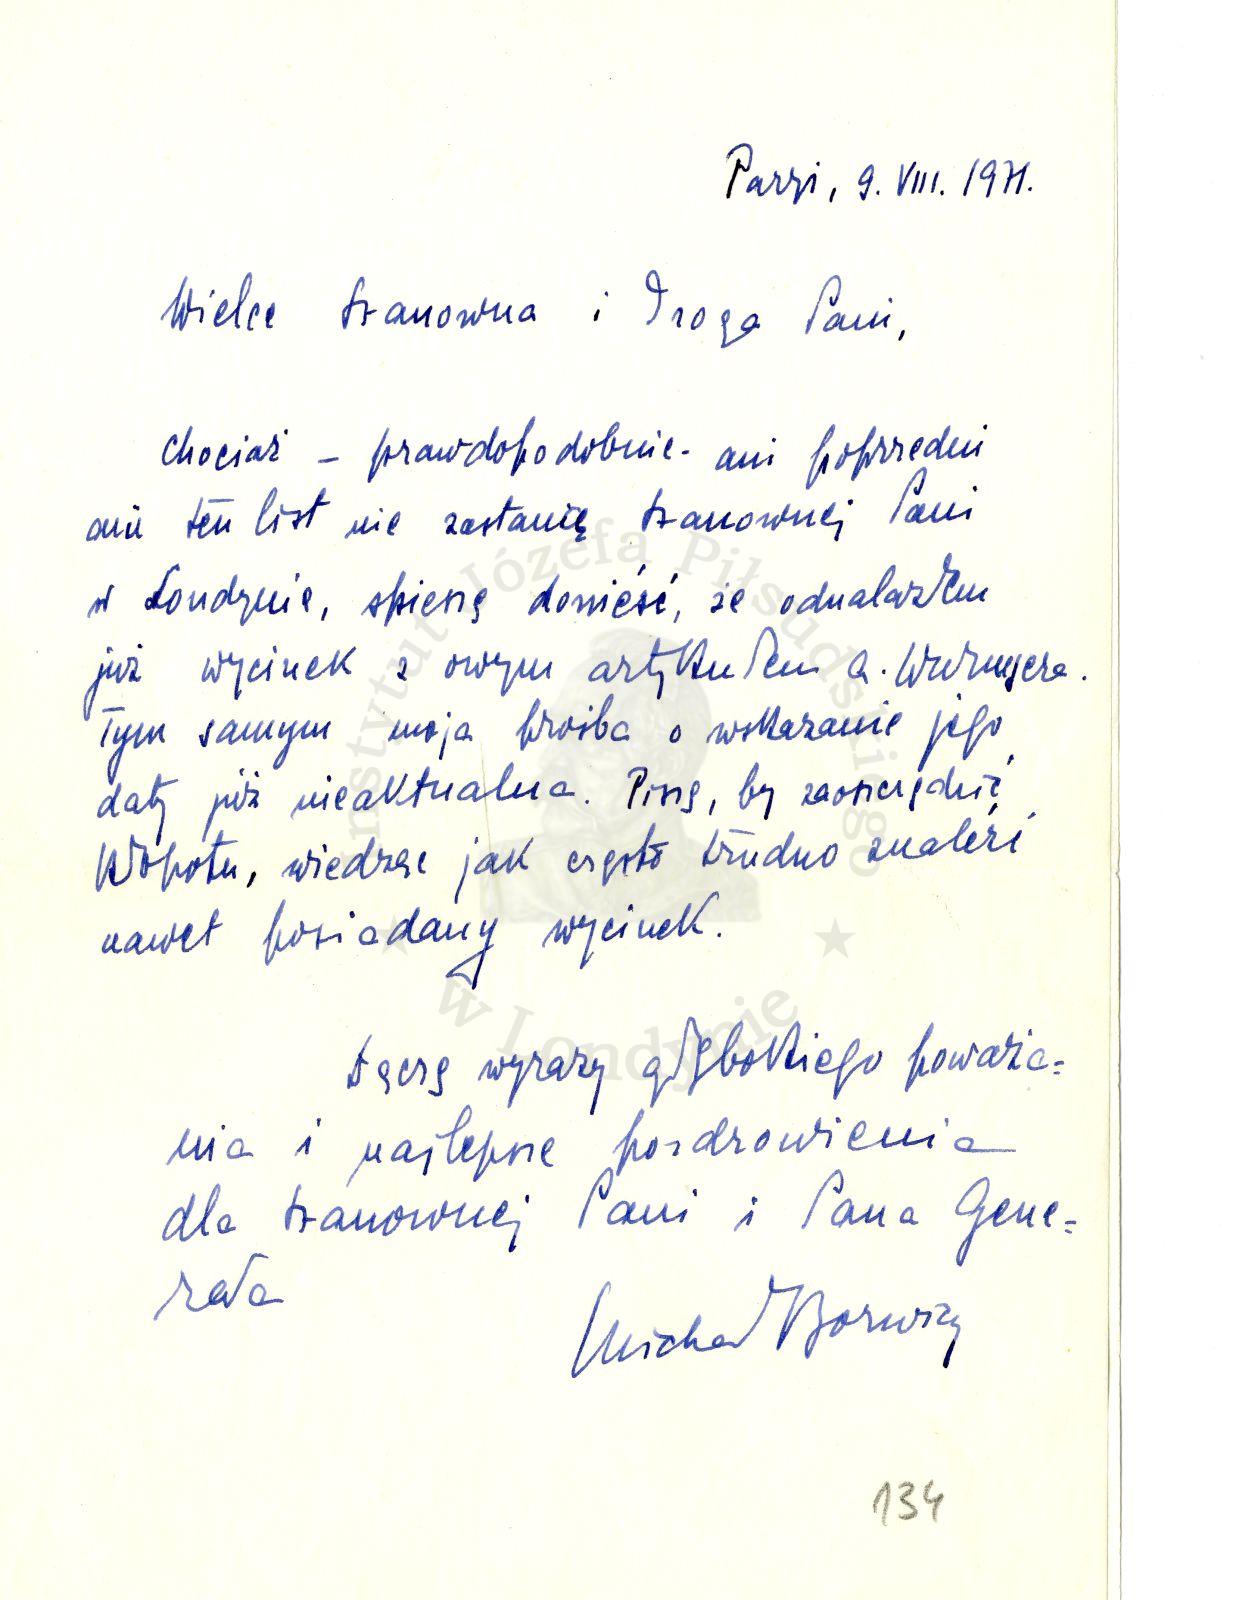 Paryż, 9. VIII. 1971.
Wielce Szanowna i Droga Pani,
Chociaż – prawdopodobnie - ani poprzedni
ani ten list nie zastanie Szanownej Pani
w Londynie, spieszę donieść, że odnalazłem
już wycinek z owym artykułem A.
Tym samym moja prośba o wskazanie jego
daty już nieaktualna. Piszę, by zaoszczędzić
kłopotu, wiedząc jak często trudno znaleźć
nawet posiadany wycinek.
Łączę wyrazy głębokiego poważa=
nia i najlepsze pozdrowienia
dla Szanownej Pani i Pana Gene=
rała
Michał Borwicz
134
Instytut Józefa Piłsudskiego
w Londynie